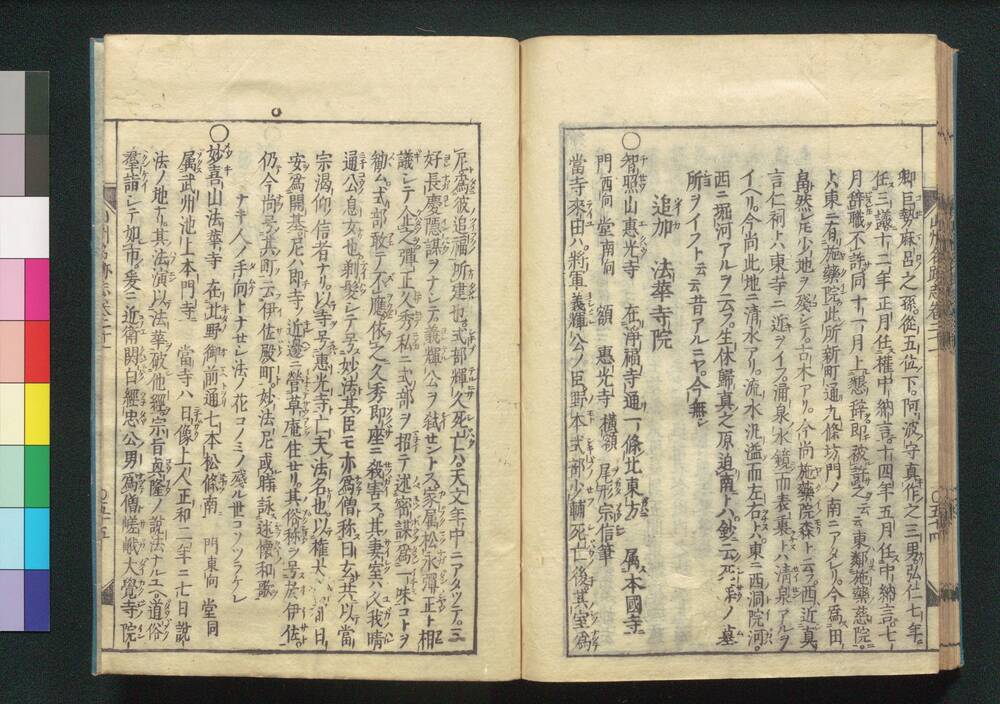 卿巨勢麻呂之孫從五位下阿波守真作之三男弘仁七年
任三議十二年正月任權中納言十四年五月任中納言七
月辞職不許同十一月上懇辞即被許之云云東鄰施藥慈院
ト東ニ有施藥院此所新町通九條坊門ノ南ニアタレリ今為田
畠然レ𪜈少地ヲ殘シテ古木アリ今尚施藥院森ト云フ西近真
言仁祠ト八東寺ニ近ヲイフ涌泉水鏡而表裏ト八清泉アルヲ
イヘリ今尚此地ニ清水アリ流水汎溢而左右ト八東ニ西洞院河
西ニ堀河アルヲ云フ生休歸真之原迫南ト八鈔云死去ノ墓
所ヲイフト云云昔アルニヤ今無シ
追加 法華寺院
〇智照山惠光寺 在浄福寺通一條北東方 属本國寺
門西向 堂南向 額 惠光寺 横額 尾形宗信筆
當寺來由八將軍義輝公ノ臣野本式部少輔死亡後其室為
尼為彼追福所建也式部輝久死亡八天文年中ニアタツテ三
好長慶隱謀ヲナシテ義輝公ヲ弑セントス家属松永彈正ト相
議シテ企之彈正久秀私ニ式部ヲ招テ述密謀為一味コトヲ
勧ム式部敢テ不應依之久秀即座ニ殺害ス其妻室八久我晴
通公息女也剃髪シテ号妙法其臣モ亦為僧称曰玄共以當
宗渇仰ノ信者ナリ以寺号惠光寺亡夫法名也以權大 日
安為開基尼八即寺ノ近邊ニ營草庵住セリ其俗称ヲ号於伊佐
仍今尚呂其町云伊佐殿町妙法尼或時詠述懐和歌
ナキ人ノ手向トナセシ法ノ花コノミノ殘ル世コソツラケレ
〇妙喜山法華寺 在北野御前通七本松條南 門東向 堂同
属武州池上本門寺 當寺八日像上人正和二年三七日説
法ノ地ナリ其法演以法華破他經宗旨貞隆ノ說法ナルユヘ道俗
羣詣シテ如市爰ニ近衛関白經忠公男為僧嵯峨大覺寺院